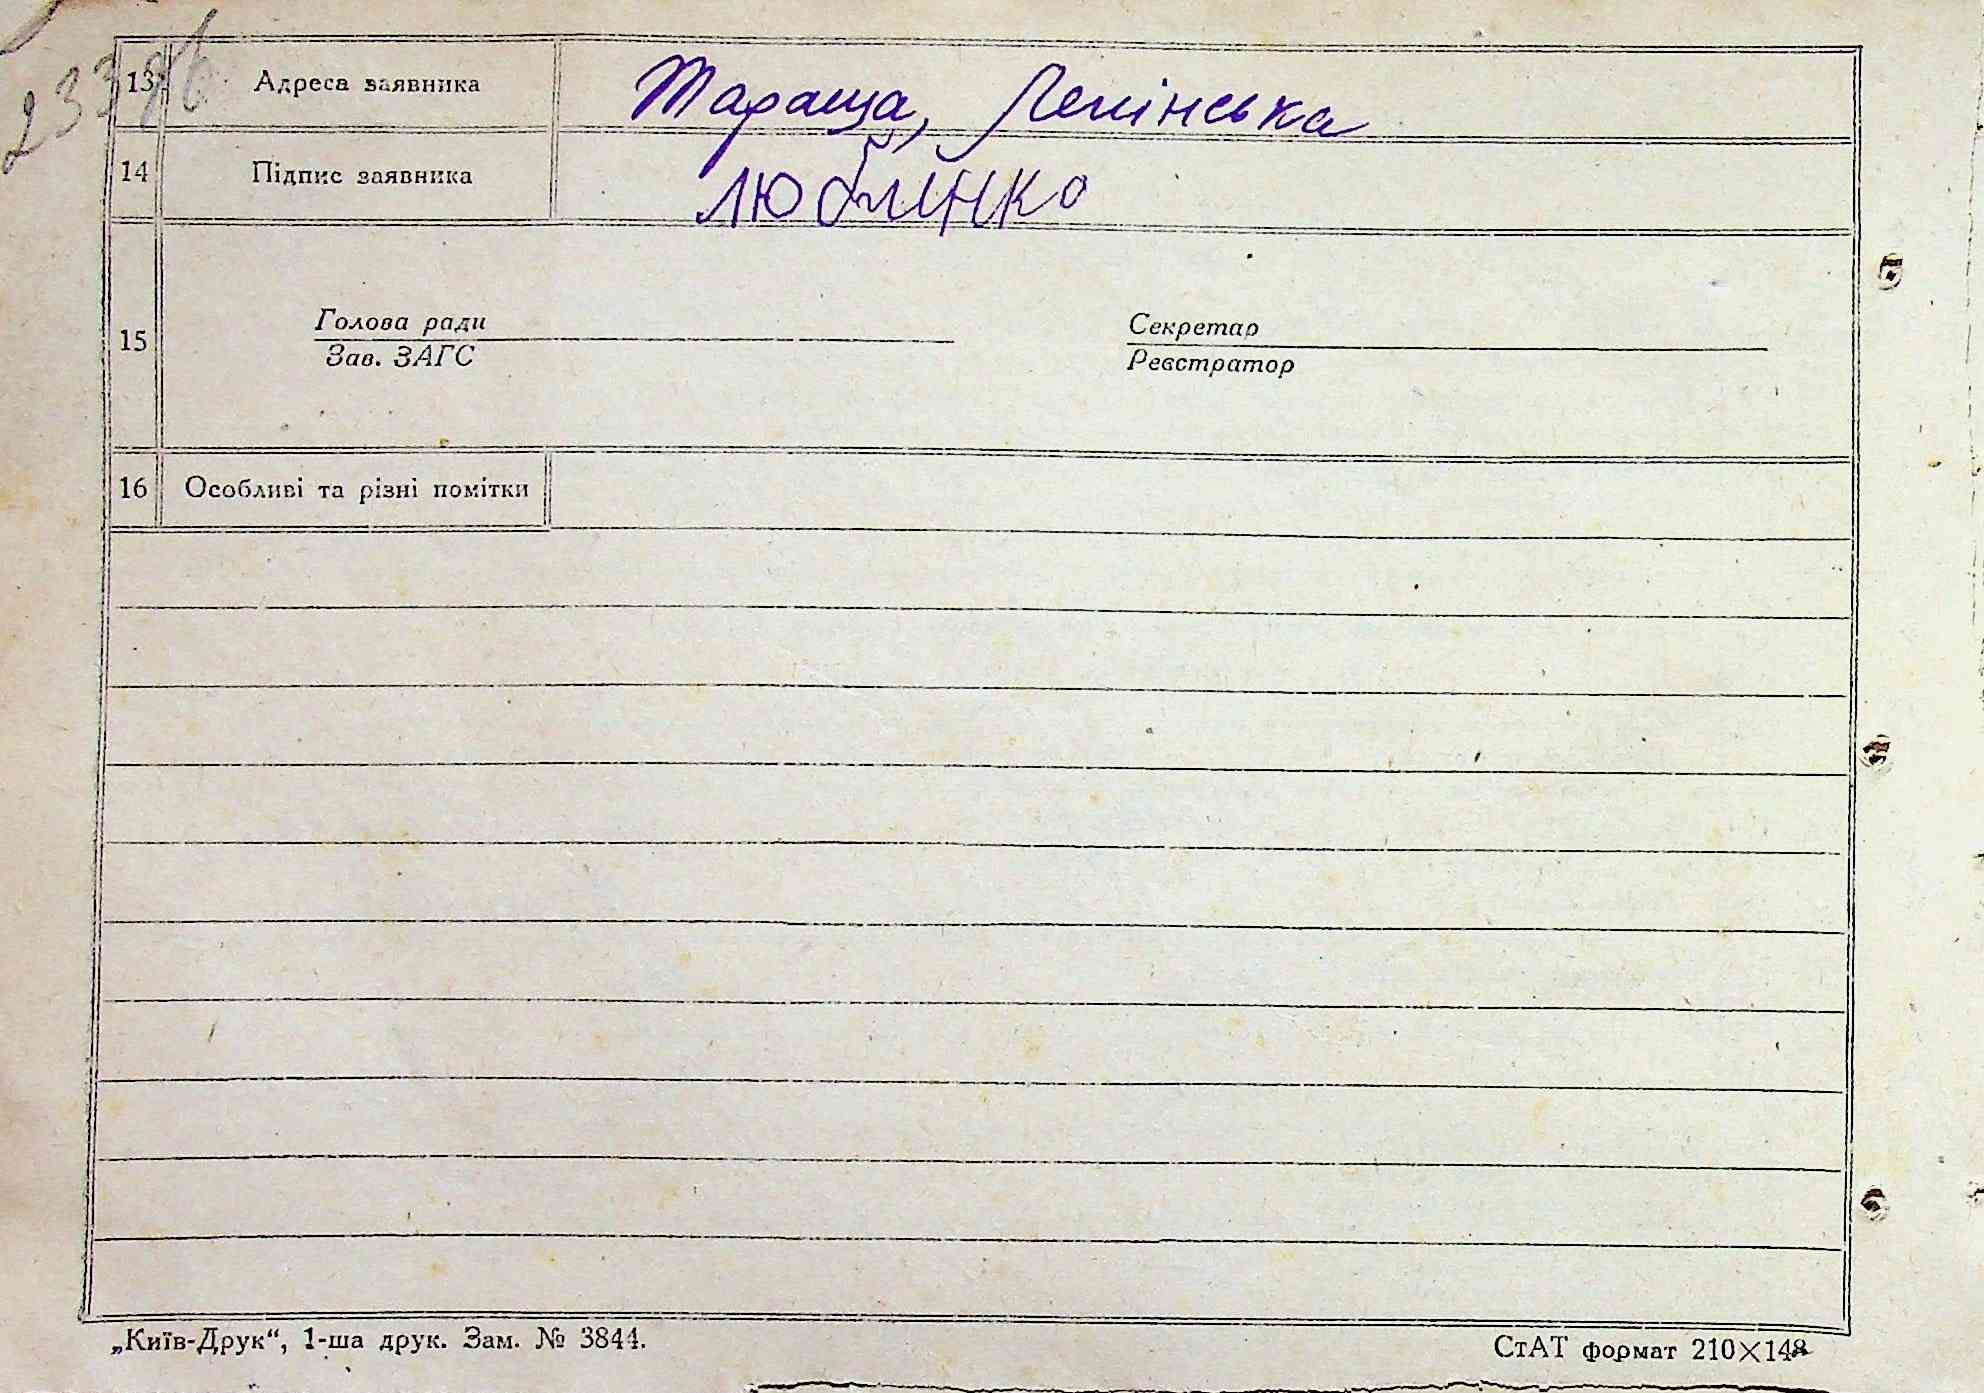 13 Адреса заявника Тараща, Ленінська
14 Підпис заявника
15 Голова ради Секретар
Зав. ЗАГС Реєстратор
16 Особливі та різні помітки
„Київ-Друк“, 1-ша друк. Зам. № 3844. СтАТ формат 210×148